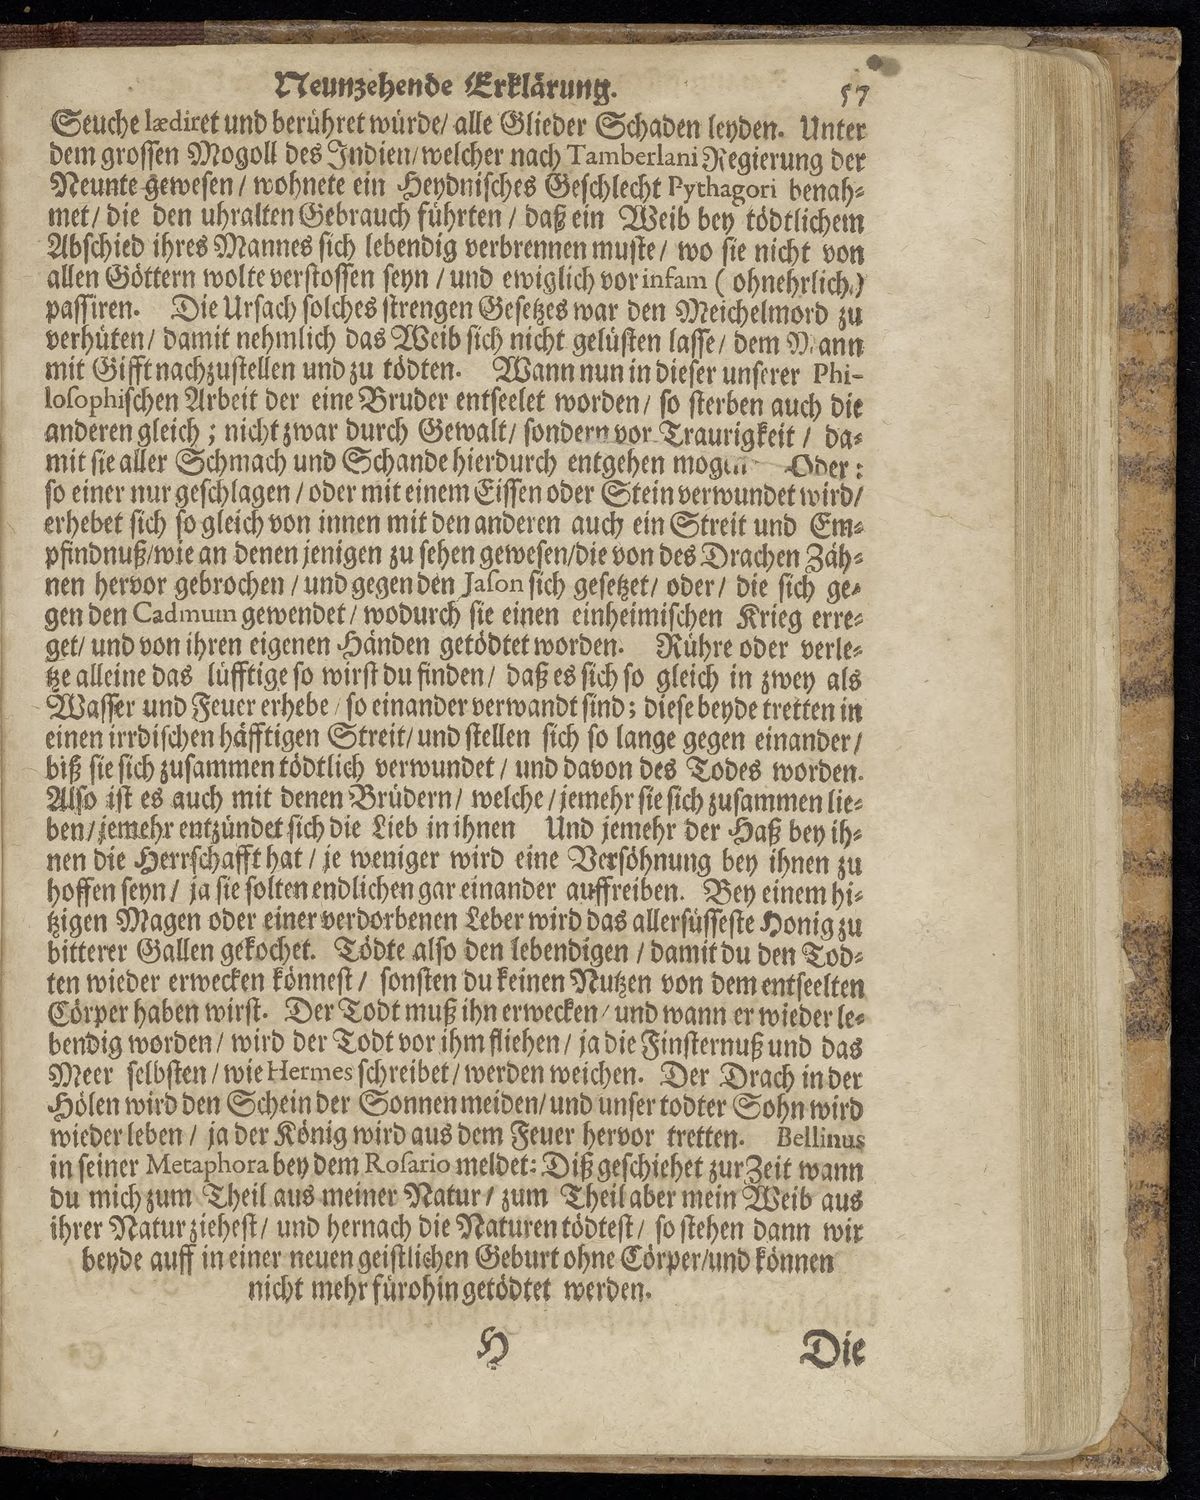 Neunzehende Erklärung. 57
Seuche lædiret und berühret würde/ alle Glieder Schaden leyden. Unter
dem grossen Mogoll des Indien/ welcher nach Tamberlani Regierung der
Neunte gewesen / wohnete ein Heydnisches Geschlecht Pythagori benah-
met / die den uhralten Gebrauch führten / daß ein Weib bey tödtlichem
Abschied ihres Mannes sich lebendig verbrennen muste / wo sie nicht von
allen Göttern wolte verstossen seyn / und ewiglich vor infam ( ohnehrlich)
passiren. Die Ursach solches strengen Gesetzes war den Meichelmord zu
verhüten / damit nehmlich das Weib sich nicht gelüsten lasse / dem Mann
mit Gifft nachzustellen und zu tödten. Wann nun in dieser unserer Phi-
losophischen Arbeit der eine Bruder entseelet worden / so sterben auch die
anderen gleich ; nicht zwar durch Gewalt / sondern vor Traurigkeit / da-
mit sie aller Schmach und Schande hierdurch entgehen mögen Oder:
so einer nur geschlagen / oder mit einem Eissen oder Stein verwundet wird/
erhebet sich so gleich von innen mit den anderen auch ein Streit und Em-
pfindnuß/wie an denen jenigen zu sehen gewesen/die von des Drachen Zäh-
nen hervor gebrochen / und gegen den Jason sich gesetzet / oder / die sich ge-
gen den Cadmum gewendet / wodurch sie einen einheimischen Krieg erre-
get/ und von ihren eigenen Händen getödtet worden. Rühre oder verle-
tze alleine das lüfftige so wirst du finden / daß es sich so gleich in zwey als
Wasser und Feuer erhebe / so einander verwandt sind ; diese beyde tretten in
einen irrdischen häfftigen Streit/ und stellen sich so lange gegen einander /
biß sie sich zusammen tödtlich verwundet / und davon des Todes worden.
Also ist es auch mit denen Brüdern / welche / jemehr sie sich zusammen lie-
ben / jemehr entzündet sich die Lieb in ihnen Und jemehr der Haß bey ih-
nen die Herrschafft hat / je weniger wird eine Versöhnung bey ihnen zu
hoffen seyn / ja sie solten endlichen gar einander auffreiben. Bey einem hi-
tzigen Magen oder einer verdorbenen Leber wird das allersüsseste Honig zu
bitterer Gallen gekochet. Tödte also den lebendigen / damit du den Tod-
ten wieder erwecken könnest / sonsten du keinen Nutzen von dem entseelten
Cörper haben wirst. Der Todt muß ihn erwecken / und wann er wieder le-
bendig worden / wird der Todt vor ihm fliehen / ja die Finsternuß und das
Meer selbsten / wie Hermes schreibet / werden weichen. Der Drach in der
Hölen wird den Schein der Sonnen meiden/ und unser todter Sohn wird
wieder leben / ja der König wird aus dem Feuer hervor tretten. Bellinus
in seiner Metaphora bey dem Rosario meldet: Diß geschiehet zur Zeit wann
du mich zum Theil aus meiner Natur / zum Theil aber mein Weib aus
ihrer Natur ziehest / und hernach die Naturen tödtest / so stehen dann wir
beyde auff in einer neuen geistlichen Geburt ohne Cörper/und können
nicht mehr fürohin getödtet werden.
H Die